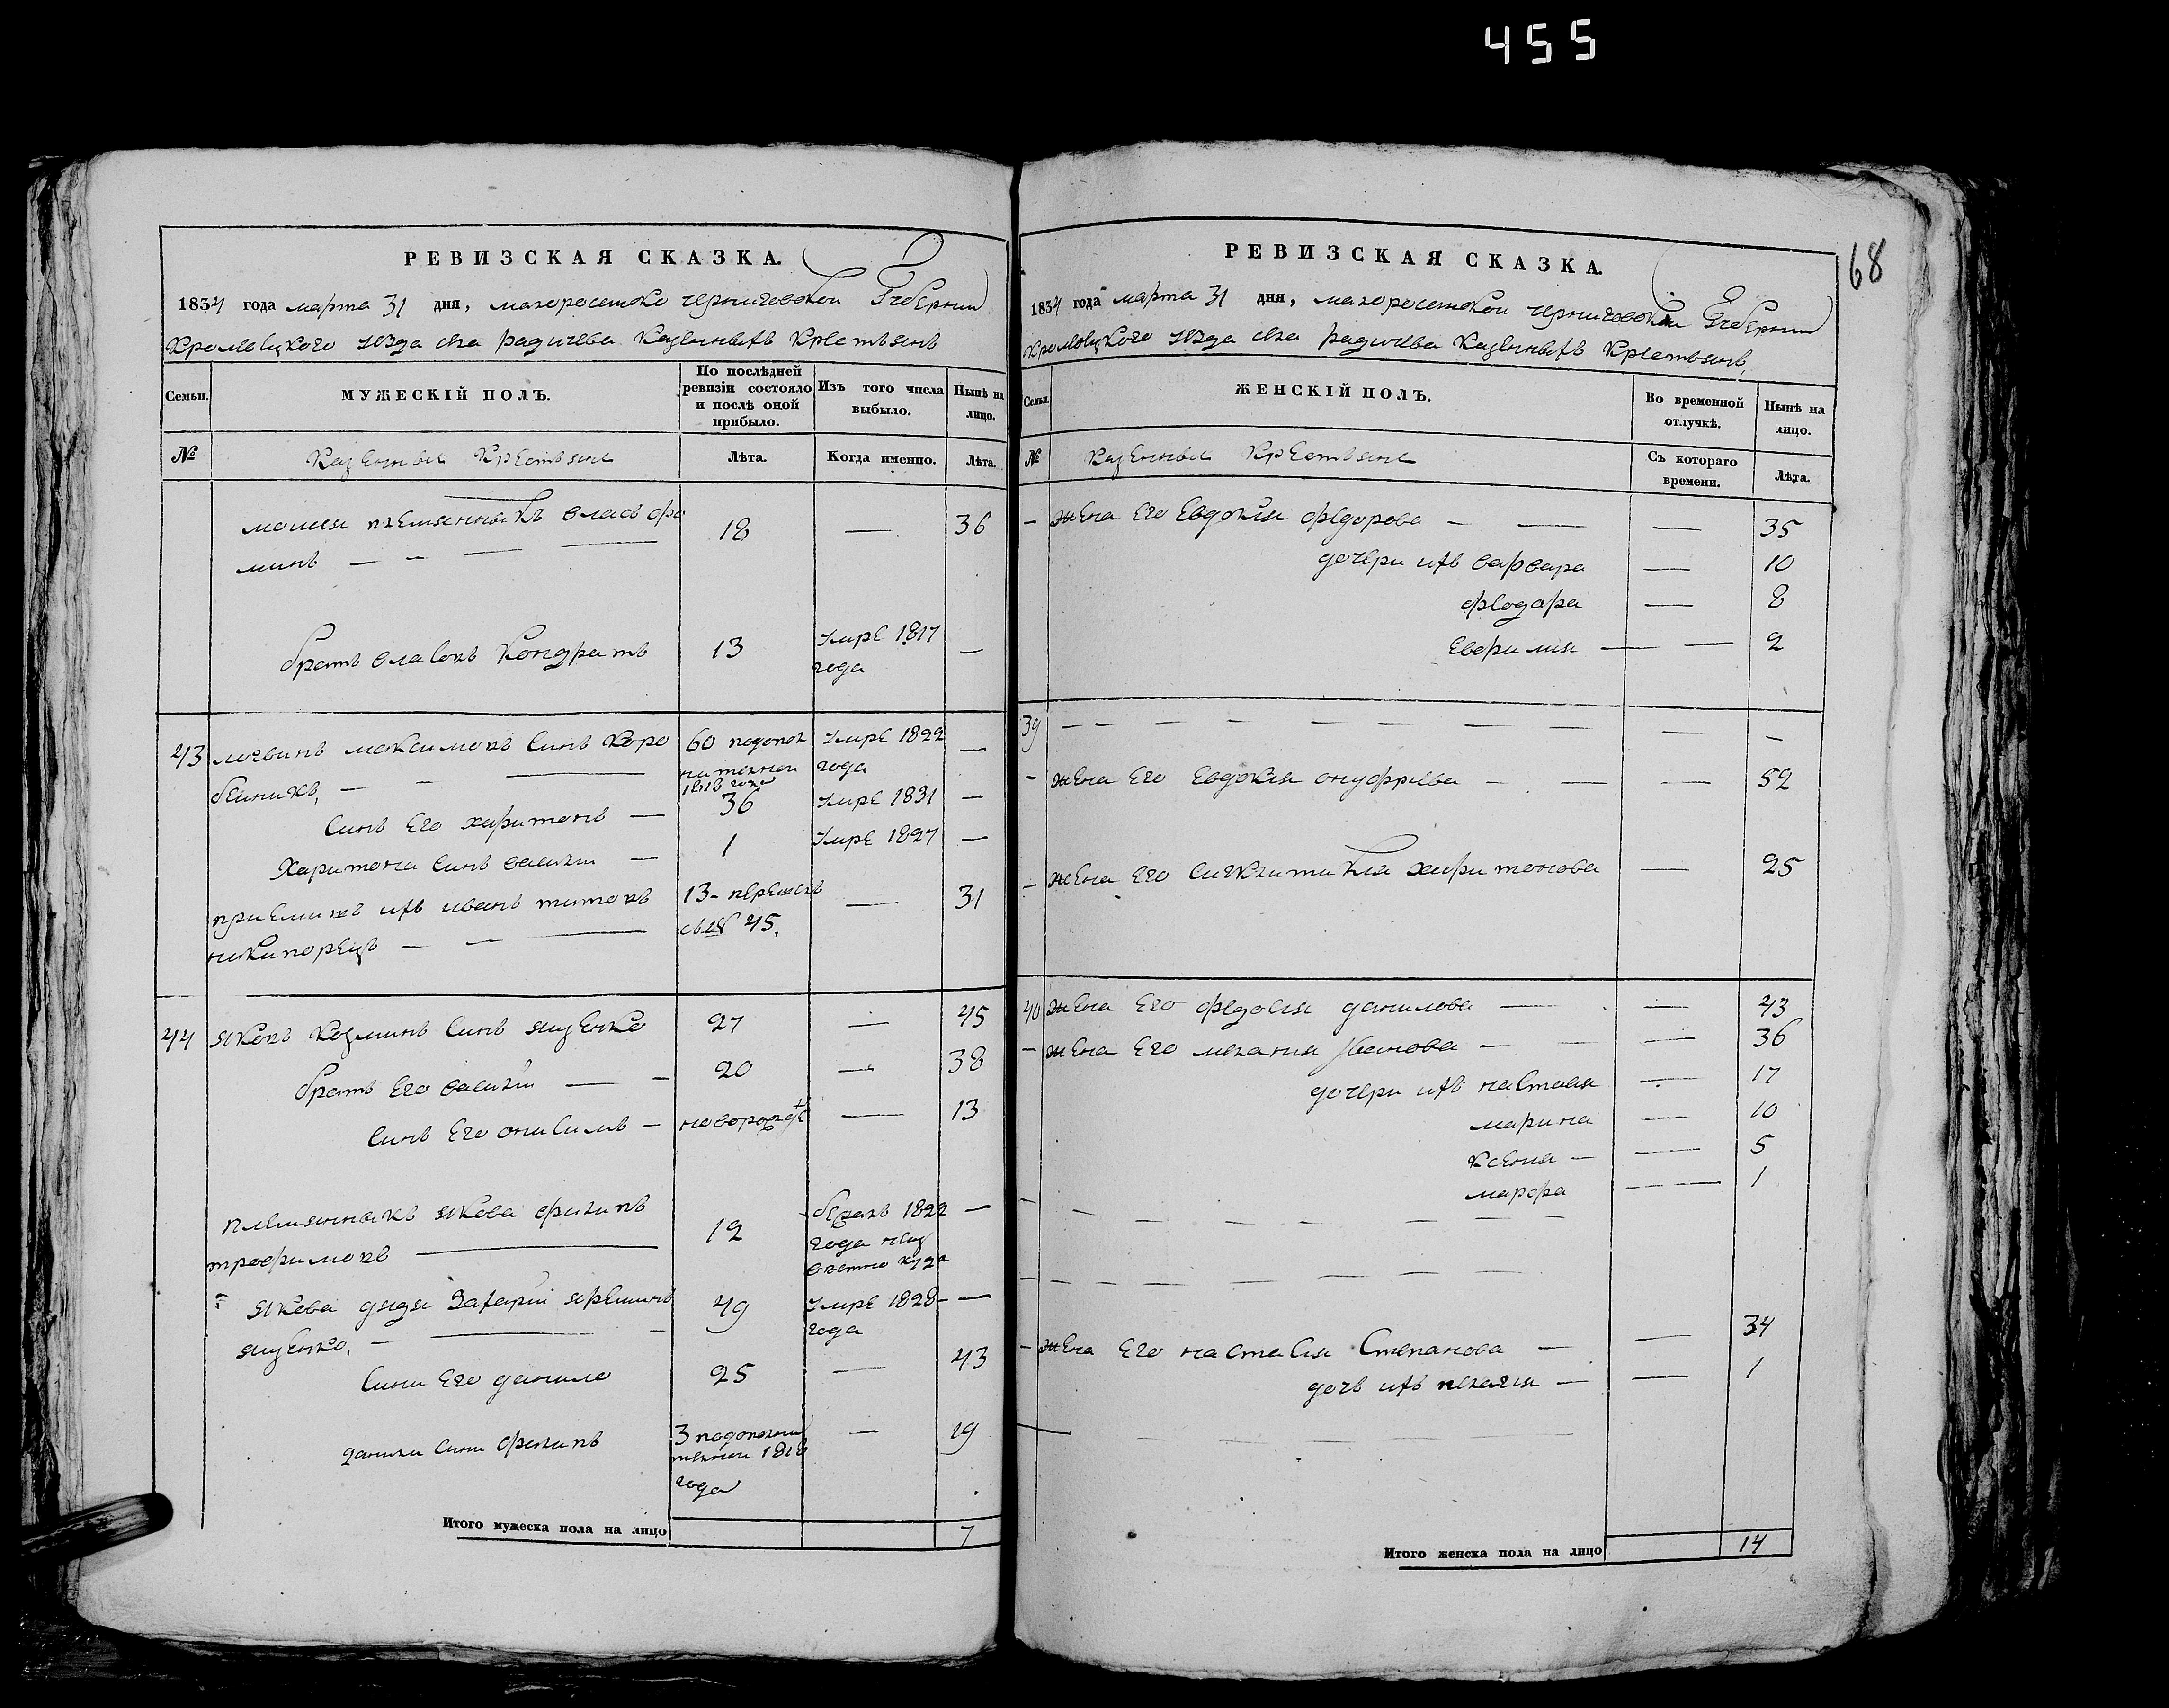 455
68
РЕВИЗСКАЯ СКАЗКА.
1834 года марта 31 дня, малоросейско черниговской Губернии
Кролевецкого уезда села радичева Казенныхъ Крестьянъ
Семьи.
МУЖЕСКІЙ ПОЛЪ.
По послѣдней ревизіи состояло и послѣ оной прибыло.
Изъ того числа выбыло.
Нынѣ на лицо.
№
Казенные Крестьяне
Лѣта.
Когда именно.
Лѣта.
племянникъ власъ фо 18 — 36
минъ — — —
братъ власовъ Кондратъ 13 умре 1817 года —
43 логвинъ максимовъ синъ Коро 60 по допол умре 1822 —
бейникъ, — — нителной 1818 года года
синъ его харитонъ — 36 умре 1831 —
Харитона синъ василий — 1 умре 1827 —
приемишъ ихъ иванъ титовъ 13 - перешелъ — 31
никипорецъ — — — съ № 45.
44 яковъ козминъ синъ яценко 27 — 45
братъ его василий — — 20 — 38
синъ его онисимъ — новорожде — 13
племянникъ якова филипъ 12 бежалъ 1822 —
трофимовъ — года неиз вестно куда
якова дядя Захарий яремин 49 умре 1828 —
яценко, — — года
сини его данило 25 — 43
данили сини филипъ 3 по дополни — 19
телной 1818
года
Итого мужеска пола на лицо 7
РЕВИЗСКАЯ СКАЗКА.
1834 года марта 31 дня, малоросейской черниговской Губернии
Кролевецкого уезда села радичева Казенныхъ Крестьянъ,
Семьи.
ЖЕНСКІЙ ПОЛЪ.
Во временной отлучкѣ.
Нынѣ на лицо.
№
Казенные Крестьяне
Съ котораго времени.
Лѣта.
— жена его Евдокия федорова — — — 35
дочери ихъ варвара — 10
феодора — 8
Евфимия — — 2
39 — — — — — — — — — —
— жена его Евдокия онуфриева — — — 52
— жена его харитонова — 25
40 жена его федосия данилова — — 43
— жена его мелания Иванова — — — 36
дочери ихъ настасия — 17
марина — 10
ксения — — 5
марфа — — — 1
— — — — — — — —
— — — — — — — —
— жена его настасия Степанова — — 34
дочь ихъ пелагия — — 1
— — — — — —
Итого женска пола на лицо 14